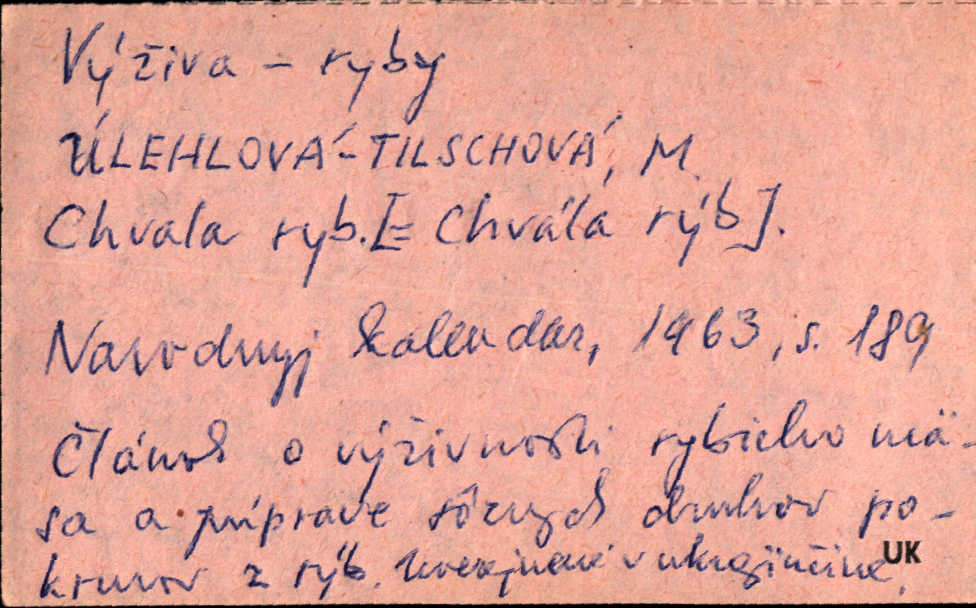 Výživa - ryby
ÚLEHLOVÁ-TILSCHOVÁ, M.
Chvala ryb. [= Chvála rýb].
Narodnyj kalendar, 1963, s. 189
Článok o výživnosti rybieho mä-
sa a príprave rôznych druhov po-
krmov z rýb. Uverejnené v ukrajinčine.
UK